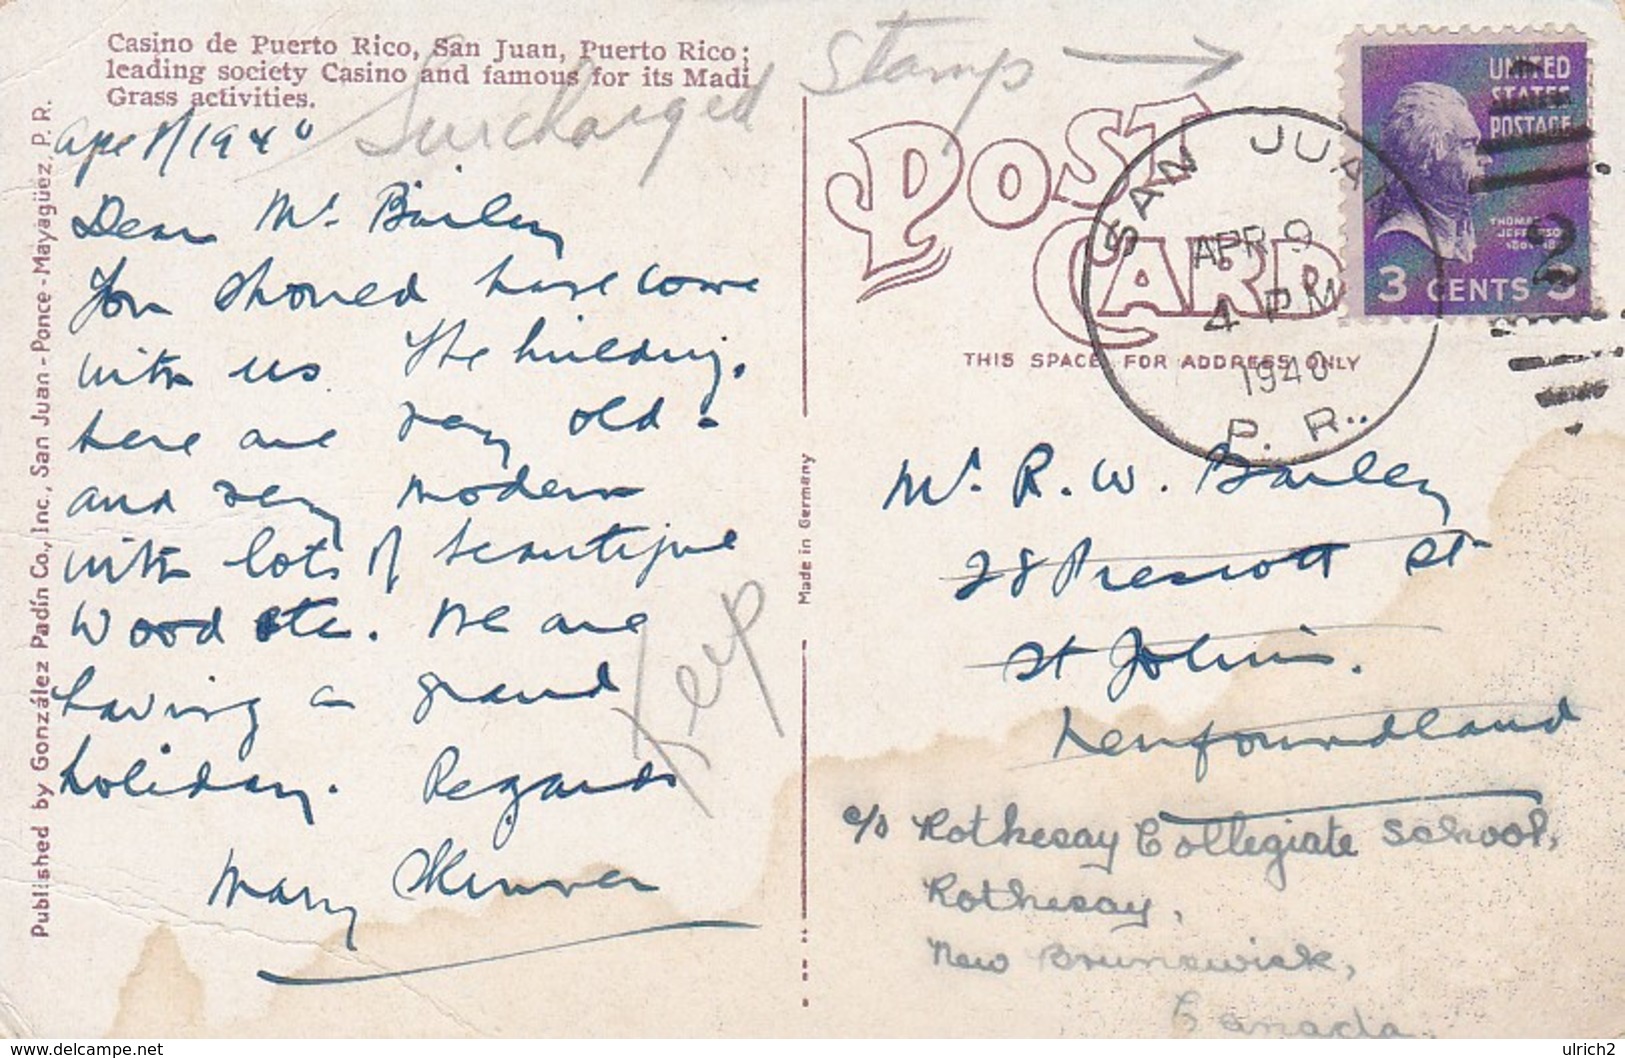 Casino de Puerto Rico, San Juan, Puerto Rico;
leading society Casino and famous for its Madi
Grass activities.
Surcharged Stamp →
Apr 8/1940
Dear Mr. Bailey
You should have come
with us The building.
here are very old.
and very modern
with lots of beautiful
Wood etc. We are
having a grand
holiday. Regards
Mary Skinner
Keep
Published by González Padín Co., Inc., San Juan - Ponce - Mayagüez, P. R.
Made in Germany
POST
CARD
THIS SPACE FOR ADDRESS ONLY
SAN JUAN
APR 9
4 PM
1940
P. R.
UNITED
STATES
POSTAGE
THOMAS
JEFFERSON
3 CENTS 3
2
Mr. R. W. Bailey
28 Prescott St
St John's.
Newfoundland
c/o Rothesay Collegiate School,
Rothesay,
New Brunswick,
Canada.
ulrich2
delcampe.net